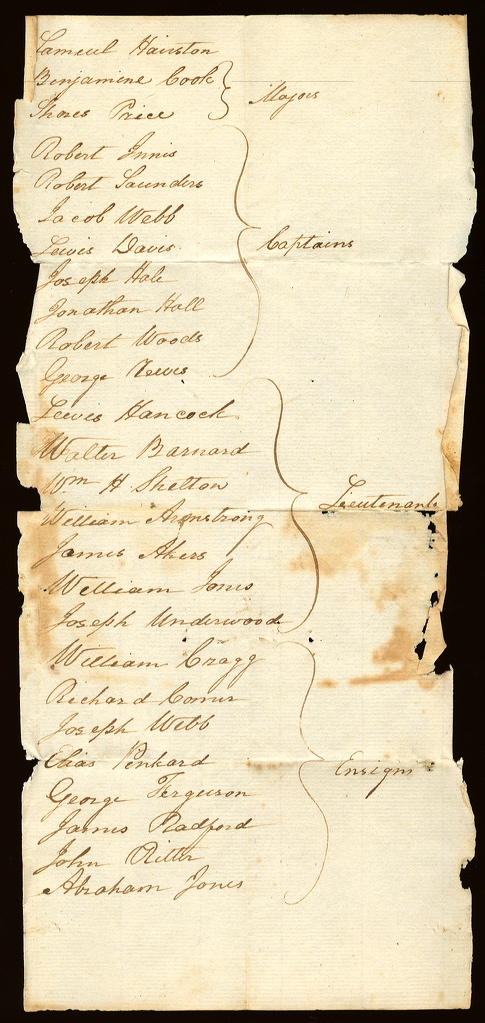 Samuel Hairston
Benjamine Cook
Shores Price
Majors
Robert Innis
Robert Saunders
Jacob Webb
Lewis Davis
Joseph Hale
Jonathan Hall
Robert Woods
George
Captains
Lewis Hancock
Walter Barnard
Wm H Shelton
William Armstrong
James Akers
William Jones
Joseph Underwood
Lieutenants
William Cragg
Richard Comer
Joseph Webb
Elias Penkard
George Ferguson
James Radford
John Ritter
Abraham Jones
Ensigns